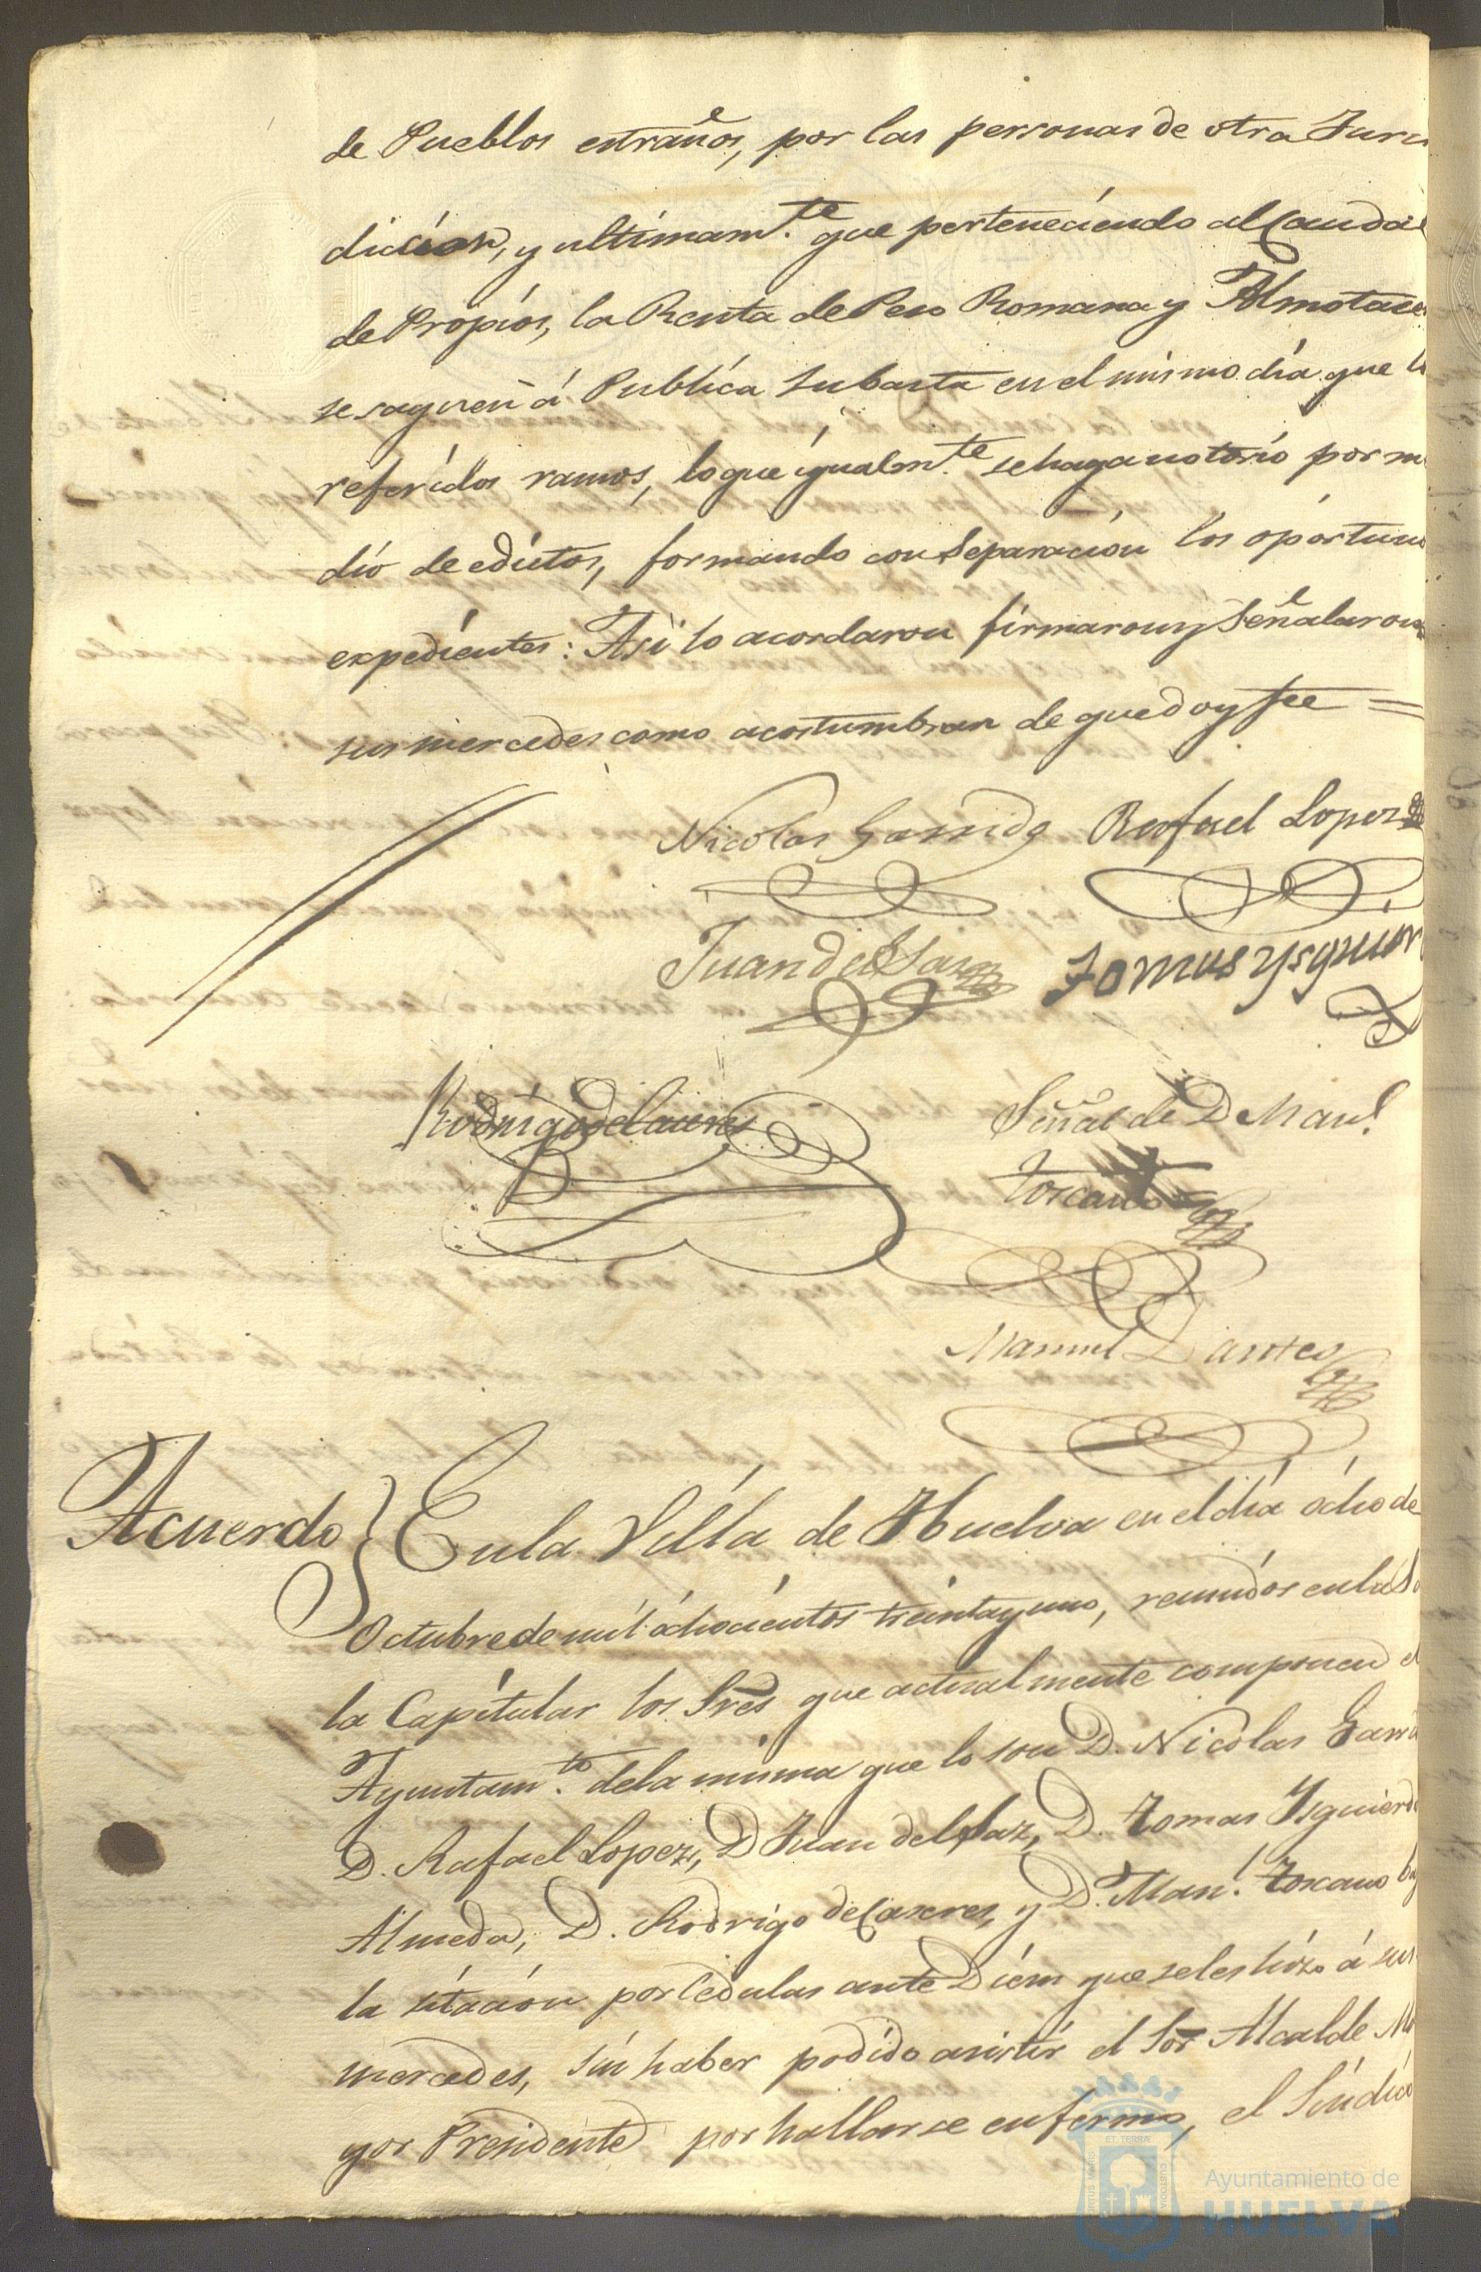 de Pueblos estraños, por las personas de otra Juris
dicion, y ultimam.te que perteneciendo al Caudal
de Propios, la Renta de Peso Romana y Almotacen
se saquen á Publica Subasta en el mismo dia que lo
referidos ramos, lo que igualm.te se haga notorio por me
dio de edictos, formando con Separacion los oportuno
expedientes: Asi lo acordaron firmaron y Señalaron
sus mercedes como acostumbran de que doy fee =
Nicolas Garrido Rafael Lopez
Juan del Saz Tomas Ysquier
Rodrigo de Caceres Señal de D Man.l
Toscano
Manuel
Acuerdo } En la Villa de Huelva en el dia ócho de
Octubre de mil óchocientos treinta y uno, reunidos en la Sa
la Capitular los Sres que actualmente componen el
Ayuntam.to de la misma que lo son D. Nicolas Garri
D. Rafael Lopez, D Juan del Saz, D. Tomas Ysquierdo
Almeda, D. Rodrigo de Caseres, y D. Man.l Toscano
la sitacion por Cedulas ante Diem que se les hizo á sus
mercedes, sin haber podido asistir el Sor Alcalde Ma
yor Presidente por hallarse enfermo, el Sindico
ET TERRÆ
Ayuntamiento de
HUELVA